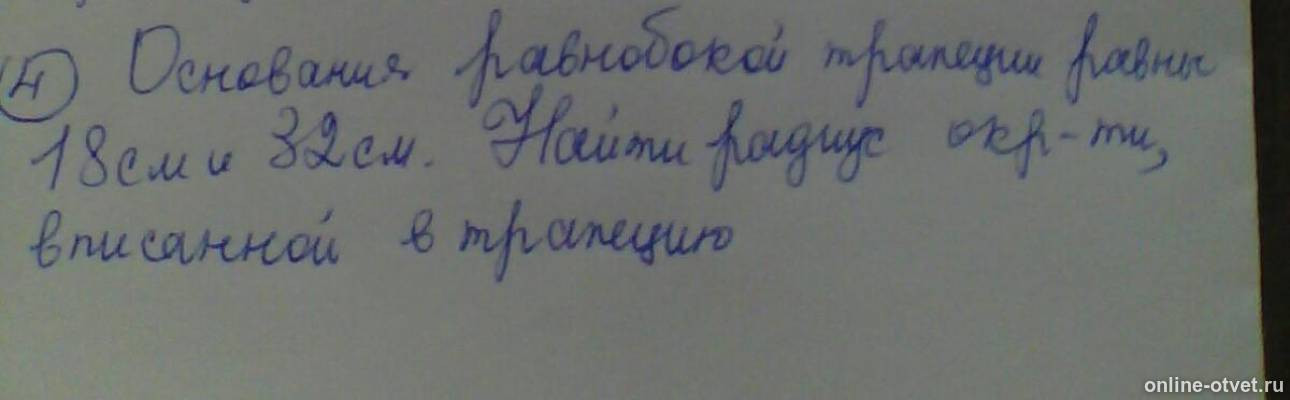 4 Основания равнобокой трапеции равны
18см и 32см. Найти радиус окр-ти,
вписанной в трапецию
online-otvet.ru